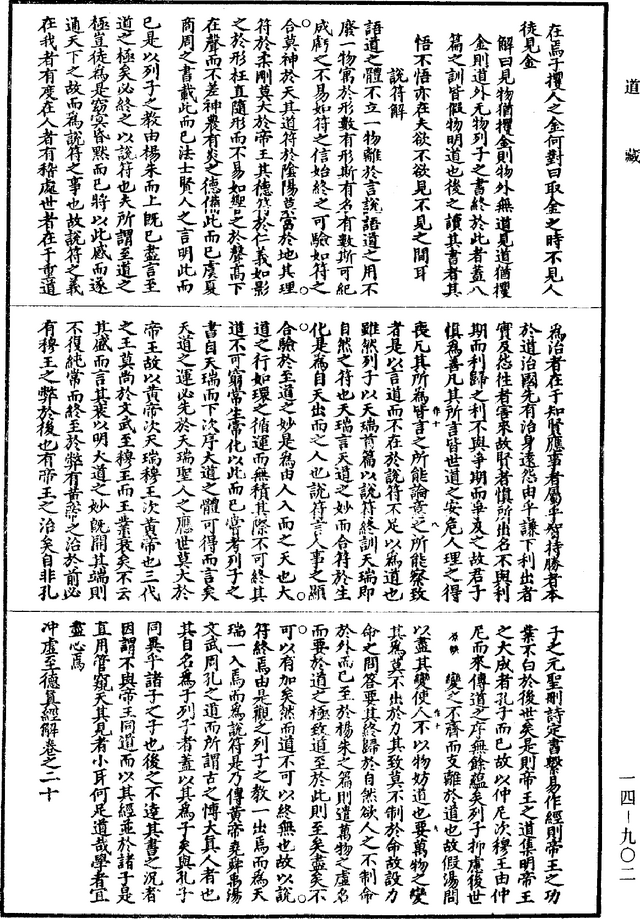 道藏
在焉子攫人之金何對曰取金之時不見人
徒見金
解曰見物猶攫金則物外無道見道猶攫
金則道外无物列子之書終於此者蓋八
篇之訓皆假物明道也後之讀其書者其
悟不悟亦在夫欲不欲見不見之間耳
說符解
語道之體不立一物離於言說語道之用不
廢一物寓於形數有形斯有名有數斯可紀
成虧之不易如符之信始終之可驗如符之
合莫神於天其道符於陰陽莫富於地其理
符於柔剛莫大於帝王其德符於仁義如影
之於形枉直隨形而不易如響之於聲高下
在聲而不差神農有炎之德備此而已虞夏
商周之書載此而已法士賢人之言明此而
已是以列子之教由楊朱而上既已盡言至
道之極矣必終之以說符也夫所謂至道之
極豈徒為是窈冥昏默而已將以此感而遂
通天下之故而為說符之事也故說符之義
在我者有度在人者有稽處世者在于重道
為治者在于知賢應事者屬乎智持勝者本
於道治國先有治身遠怨由乎謙下利出者
實及怨往者害來故賢者慎所出名不與利
期而利歸之利不與爭期而爭及之故君子
慎為善凡其所言皆世道之安危人理之得
喪凡其所為皆言之所能論意之所能察致
者是以言道而不在於說符不足以為道也
雖然列子以天瑞首篇以說符終訓天瑞即
自然之符也天瑞言天道之妙而合符於生
化是為自天出而之人也說符言人事之顯
合驗於至道之妙是為由人入而之天也大
道之行如環之循運而無積其際不可終其
道不可窮常生常化以此而已嘗考列子之
書自天瑞而下次序大道之體可得而言矣
天道之運必先於天瑞聖人之應世莫大於
帝王故以黃帝次天瑞穆王次黃帝也三代
之王莫尚於文武至穆王而王業衰矣不云
其盛而言其衰以明大道之妙既開其端則
不復純常而終至於弊有黃帝之治於前必
有穆王之弊於後也有帝王之治矣自非孔
子之元聖刪詩定書繫易作經則帝王之功
業不白於後世矣是則帝王之道集明帝王
之大成者孔子而已故以仲尼次穆王由仲
尼而來傳道之序無餘蘊矣列子抑慮後世
變之不齊而支離於道也故假湯問
以盡其變使人不以物妨道也要萬物之變
其為莫不出於力其致莫不制於命故設力
命之問答要其終歸於自然欲人之不制命
於外而已至於楊朱之篇則遣萬物之虛名
而要於道之極致道至於此則至矣盡矣不
可以有加矣然而道不可以終無也故以說
符終焉由是觀之列子之教一出焉而為天
瑞一入焉而為說符是乃傳黃帝堯舜禹湯
文武周孔之道而所謂古之博大真人者也
其自名為子列子者蓋以其為子矣與孔子
同異乎諸子之子也後之不達其書之況者
因謂不與帝王同道而以其經並於諸子是
直用管窺天其見者小耳何足道哉學者宜
盡心焉
冲虛至德真經解卷之二十
一四—九〇二